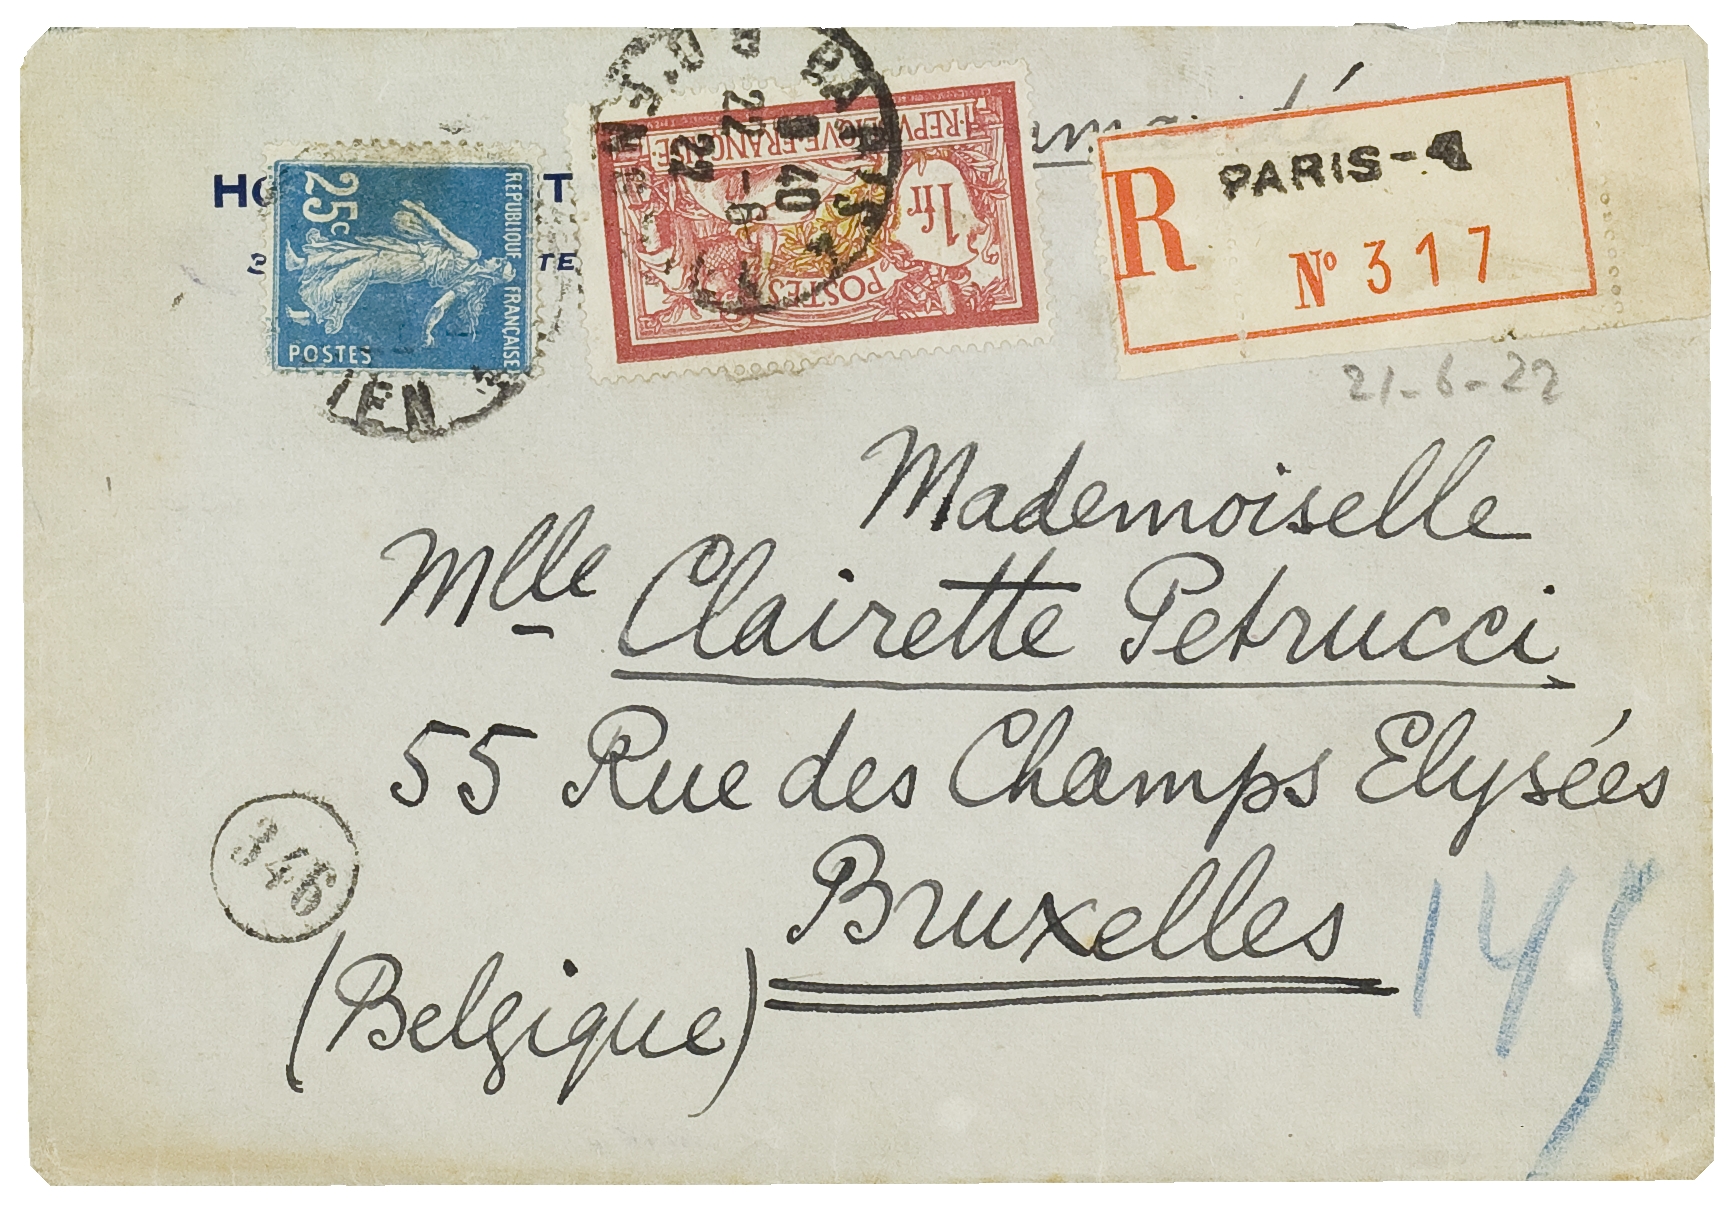 25c
REPUBLIQUE FRANÇAISE
POSTES
REPVBLIQVE FRANÇAISE
1fr
POSTES
PARIS
22
R
PARIS-
Nº 317
21-6-22
Mademoiselle
Mlle Clairette Petrucci
55 Rue des Champs Elysées
Bruxelles
(Belgique)
346
145